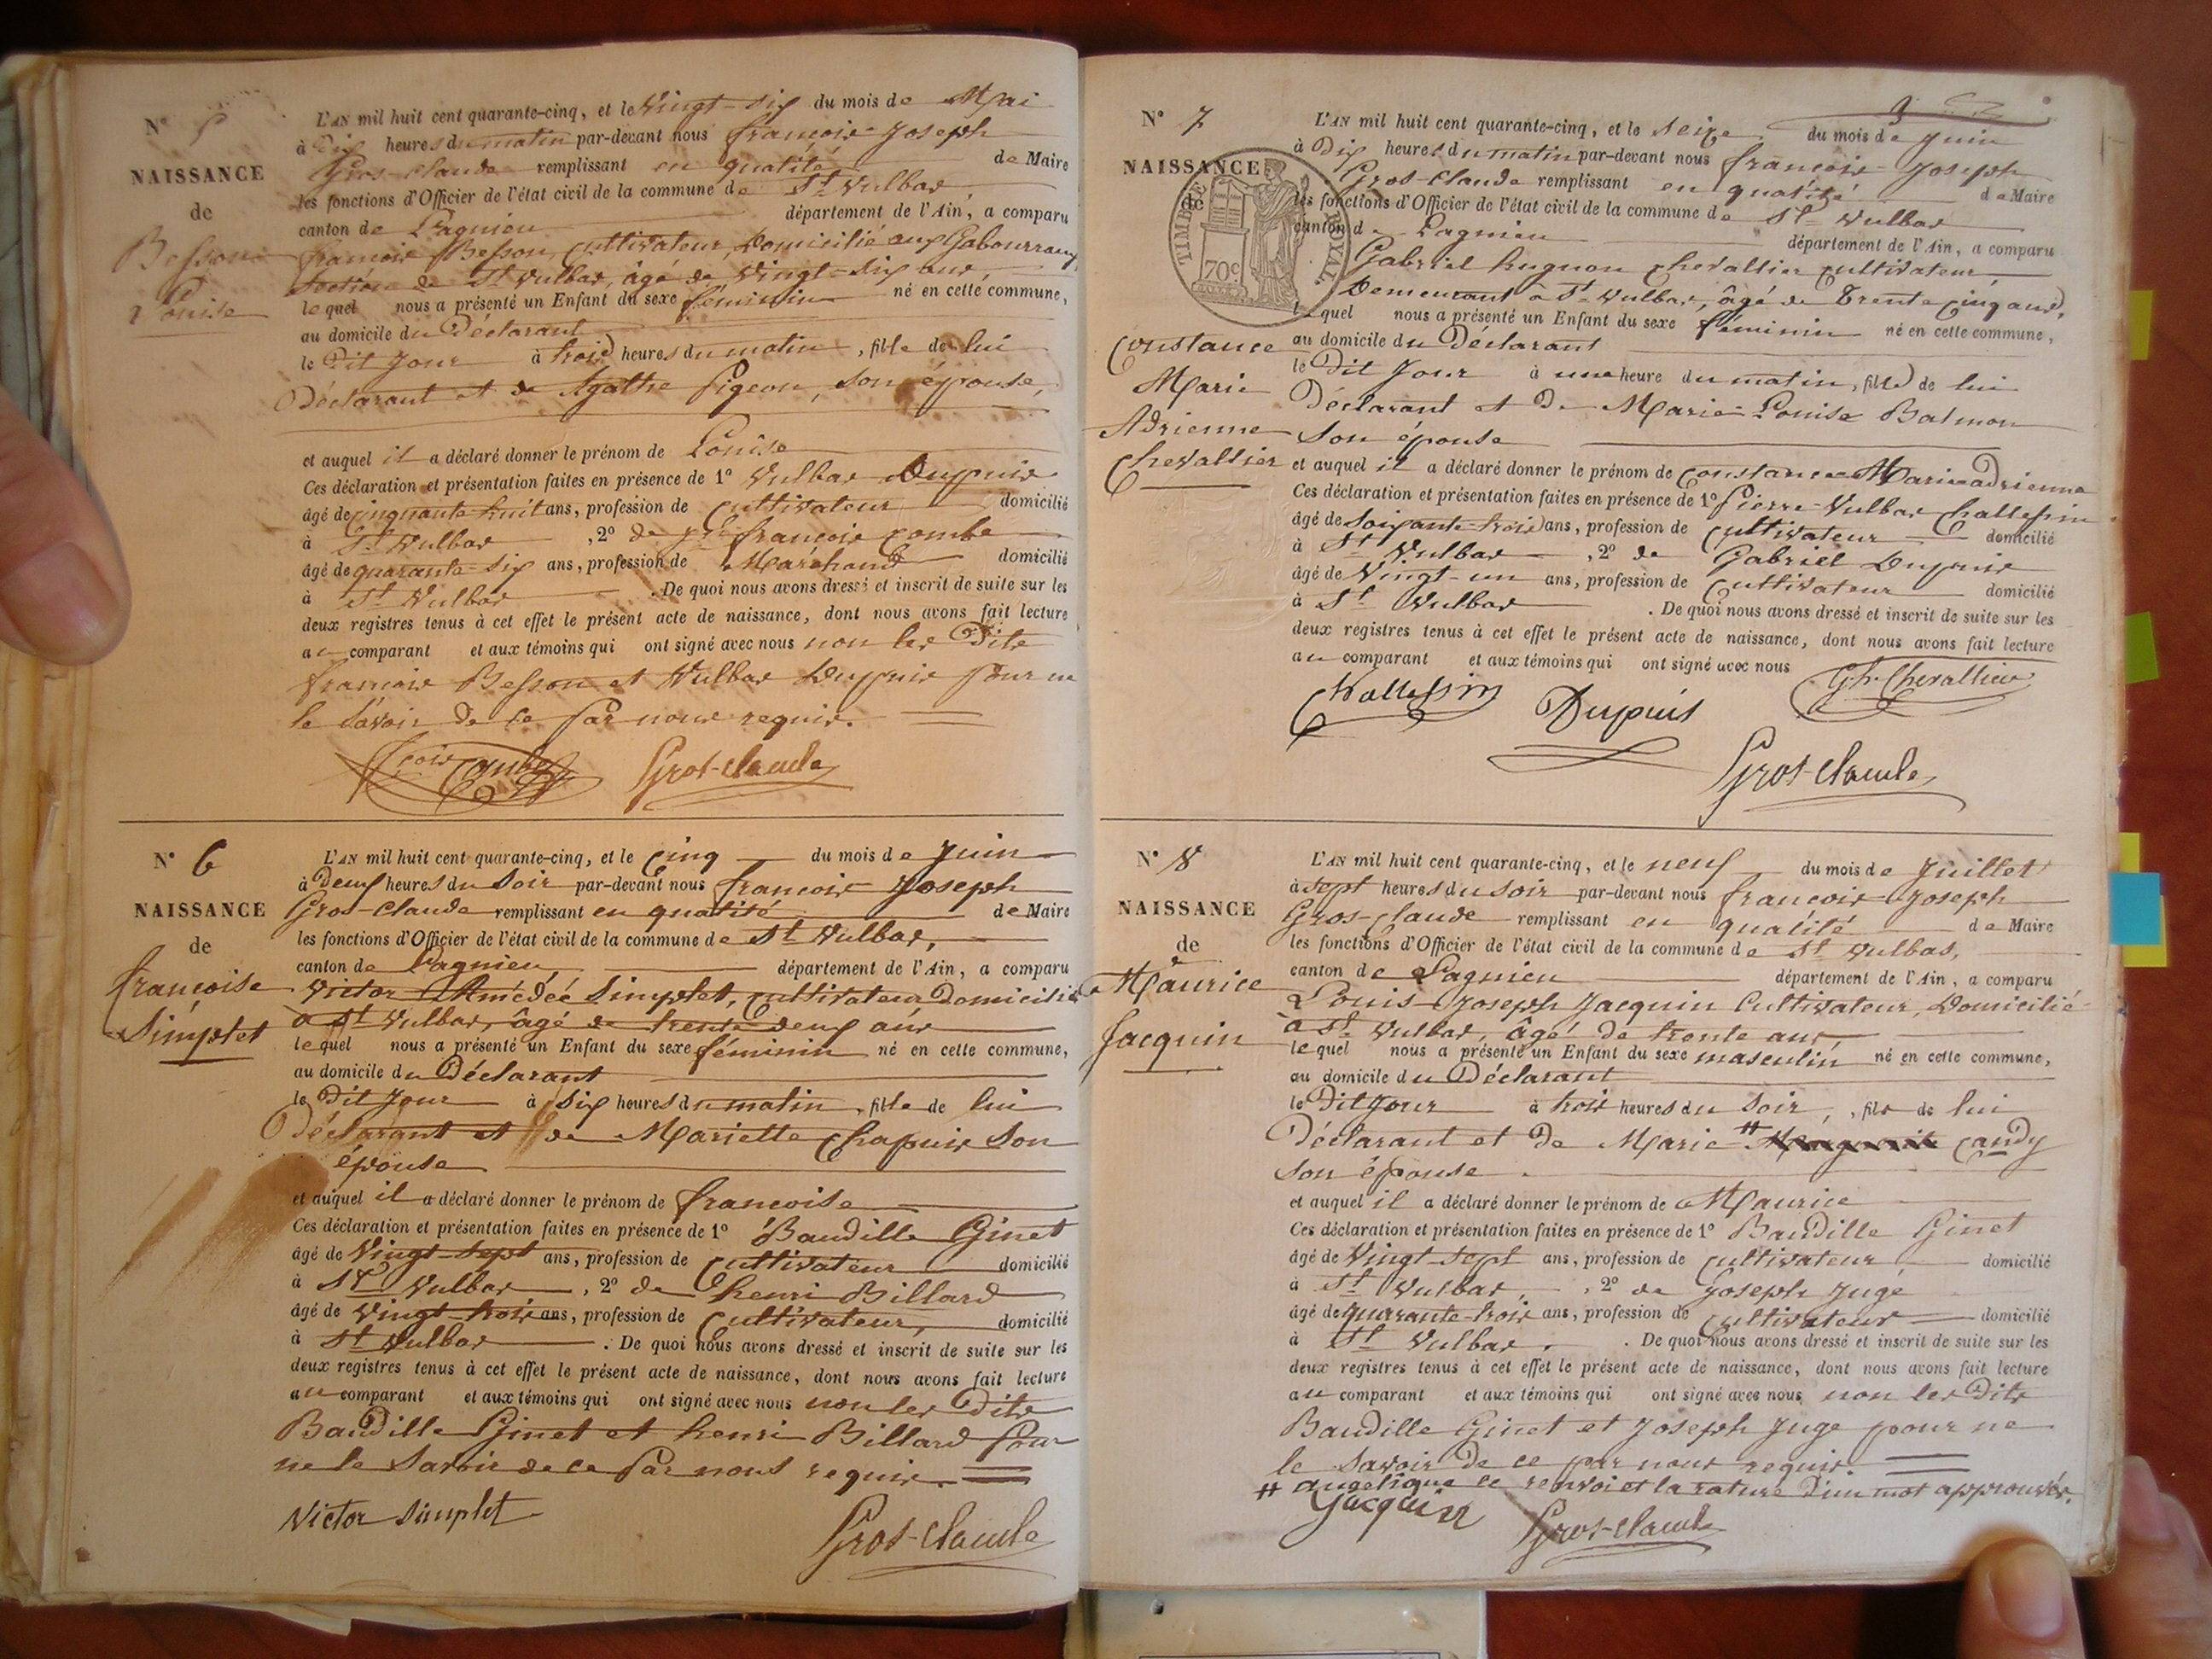 N° 5
NAISSANCE
de
Besson
Louise
L'AN mil huit cent quarante-cinq, et le Vingt-six du mois de Mai
à Dix heures du matin par-devant nous françois Joseph
Gros-claude remplissant en qualité de Maire
les fonctions d'Officier de l'état civil de la commune de St Vulbas
canton de Lagnieu département de l'Ain, a comparu
françois Besson, Cultivateur, Domicilié aux Gabourraux
section de St Vulbas, âgé de Vingt-six ans,
lequel nous a présenté un Enfant du sexe féminin né en cette commune,
au domicile du Déclarant
le Dit Jour à trois heures du matin, fille de lui
Déclarant et de Agathe Pigeon, son épouse,
et auquel il a déclaré donner le prénom de Louise
Ces déclaration et présentation faites en présence de 1° Vulbas Dupuis
âgé de cinquante-huit ans, profession de Cultivateur domicilié
à St Vulbas, 2° de françois Combe
âgé de quarante-six ans, profession de Maréchand domicilié
à St Vulbas. De quoi nous avons dressé et inscrit de suite sur les
deux registres tenus à cet effet le présent acte de naissance, dont nous avons fait lecture
au comparant et aux témoins qui ont signé avec nous non les Dits
françois Besson et Vulbas Dupuis pour ne
le Savoir De ce Par nous requis.
Combe Gros-claude
N° 6
NAISSANCE
de
françoise
Simplet
L'AN mil huit cent quarante-cinq, et le Cinq du mois de Juin
à Deux heures du Soir par-devant nous françois Joseph
Gros-claude remplissant en qualité de Maire
les fonctions d'Officier de l'état civil de la commune de St Vulbas,
canton de Lagnieu département de l'Ain, a comparu
Victor Amédée Simplet, Cultivateur Domicilié
à St Vulbas, âgé de trente-deux ans
lequel nous a présenté un Enfant du sexe féminin né en cette commune,
au domicile du Déclarant
le Dit Jour à Six heures du matin, fille de lui
Déclarant et de Mariette Chapuis Son
épouse
et auquel il a déclaré donner le prénom de françoise
Ces déclaration et présentation faites en présence de 1° Baudille Ginet
âgé de Vingt-sept ans, profession de Cultivateur domicilié
à St Vulbas, 2° de henri Billard
âgé de Vingt-trois ans, profession de Cultivateur, domicilié
à St Vulbas. De quoi nous avons dressé et inscrit de suite sur les
deux registres tenus à cet effet le présent acte de naissance, dont nous avons fait lecture
au comparant et aux témoins qui ont signé avec nous non les Dits
Baudille Ginet et henri Billard Pour
ne le Savoir de ce Par nous requis.
Victor Simplet
Gros-claude
N° 7
NAISSANCE
de
TIMBRE ROYAL
70c
Constance
Marie
Adrienne
Chevallier
L'AN mil huit cent quarante-cinq, et le Seize du mois de Juin
à Dix heures du matin par-devant nous françois Joseph
Gros-claude remplissant en qualité de Maire
les fonctions d'Officier de l'état civil de la commune de St Vulbas
canton de Lagnieu département de l'Ain, a comparu
Gabriel hugnon Chevallier Cultivateur
Demeurant à St Vulbas, âgé de Trente Cinq ans,
lequel nous a présenté un Enfant du sexe féminin né en cette commune,
au domicile du Déclarant
le Dit Jour à une heure du matin, fille de lui
Déclarant et De Marie-Louise Balmon
Son épouse
et auquel il a déclaré donner le prénom de Constance Marie adrienne
Ces déclaration et présentation faites en présence de 1° Pierre-Vulbas Challessin
âgé de Soixante-trois ans, profession de Cultivateur domicilié
à St Vulbas, 2° de Gabriel Dupuis
âgé de Vingt-un ans, profession de Cultivateur domicilié
à St Vulbas. De quoi nous avons dressé et inscrit de suite sur les
deux registres tenus à cet effet le présent acte de naissance, dont nous avons fait lecture
au comparant et aux témoins qui ont signé avec nous
Challessin Dupuis Gh. Chevallier
Gros-claude
N° 8
NAISSANCE
de
Maurice
Jacquin
L'AN mil huit cent quarante-cinq, et le neuf du mois de Juillet
à sept heures du soir par-devant nous françois Joseph
Gros-claude remplissant en qualité de Maire
les fonctions d'Officier de l'état civil de la commune de St Vulbas,
canton de Lagnieu département de l'Ain, a comparu
Louis Joseph Jacquin Cultivateur, Domicilié
à St Vulbas, âgé de trente ans,
lequel nous a présenté un Enfant du sexe masculin né en cette commune,
au domicile du Déclarant
le Dit Jour à trois heures du Soir, fils de lui
Déclarant et De Marie # Candy
son épouse.
et auquel il a déclaré donner le prénom de Maurice
Ces déclaration et présentation faites en présence de 1° Baudille Ginet
âgé de Vingt-sept ans, profession de Cultivateur domicilié
à St Vulbas, 2° de Joseph Juge
âgé de quarante-trois ans, profession de Cultivateur domicilié
à St Vulbas. De quoi nous avons dressé et inscrit de suite sur les
deux registres tenus à cet effet le présent acte de naissance, dont nous avons fait lecture
au comparant et aux témoins qui ont signé avec nous non les Dits
Baudille Ginet et Joseph Juge pour ne
le Savoir De ce par nous requis.
# angélique ce renvoi et la rature d'un mot approuvés.
Jacquin Gros-claude